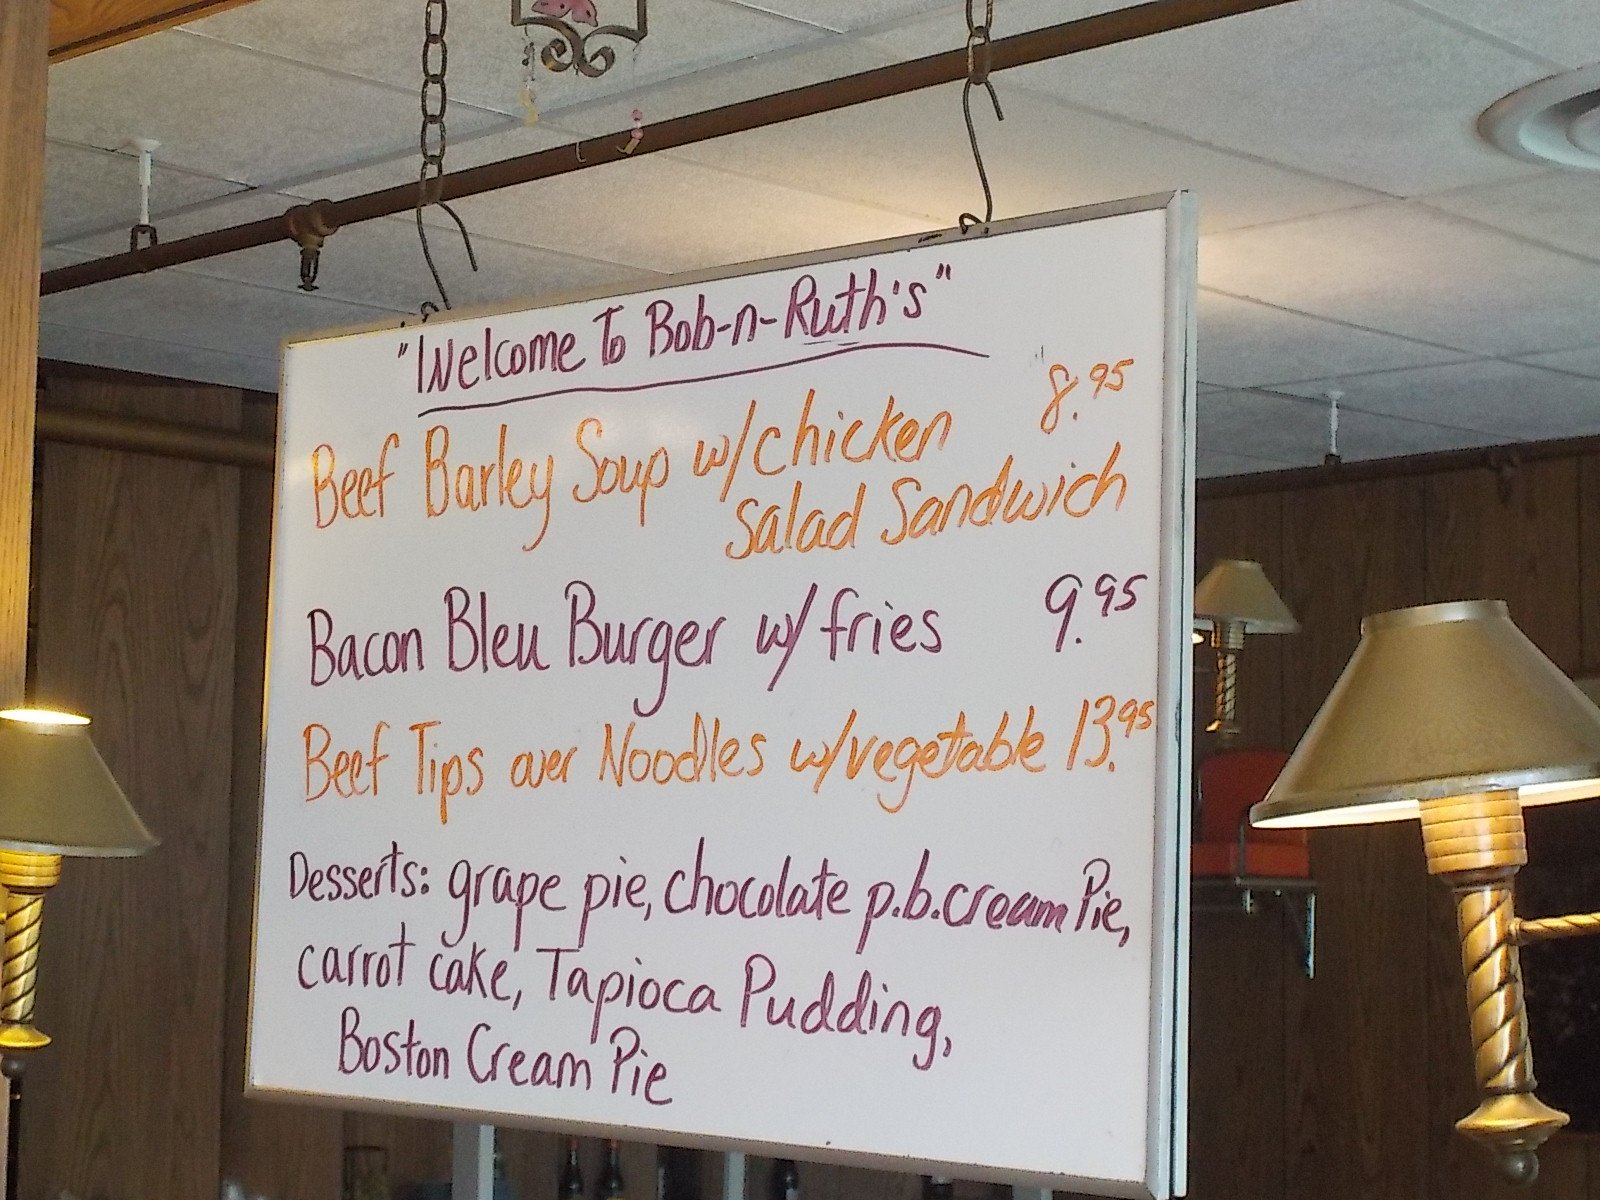 "Welcome To Bob-n-Ruth's"
Beef Barley Soup w/chicken 8.95
Salad Sandwich
Bacon Bleu Burger w/ fries 9.95
Beef Tips over Noodles w/vegetable 13.95
Desserts: grape pie, chocolate p.b.cream Pie,
carrot cake, Tapioca Pudding,
Boston Cream Pie